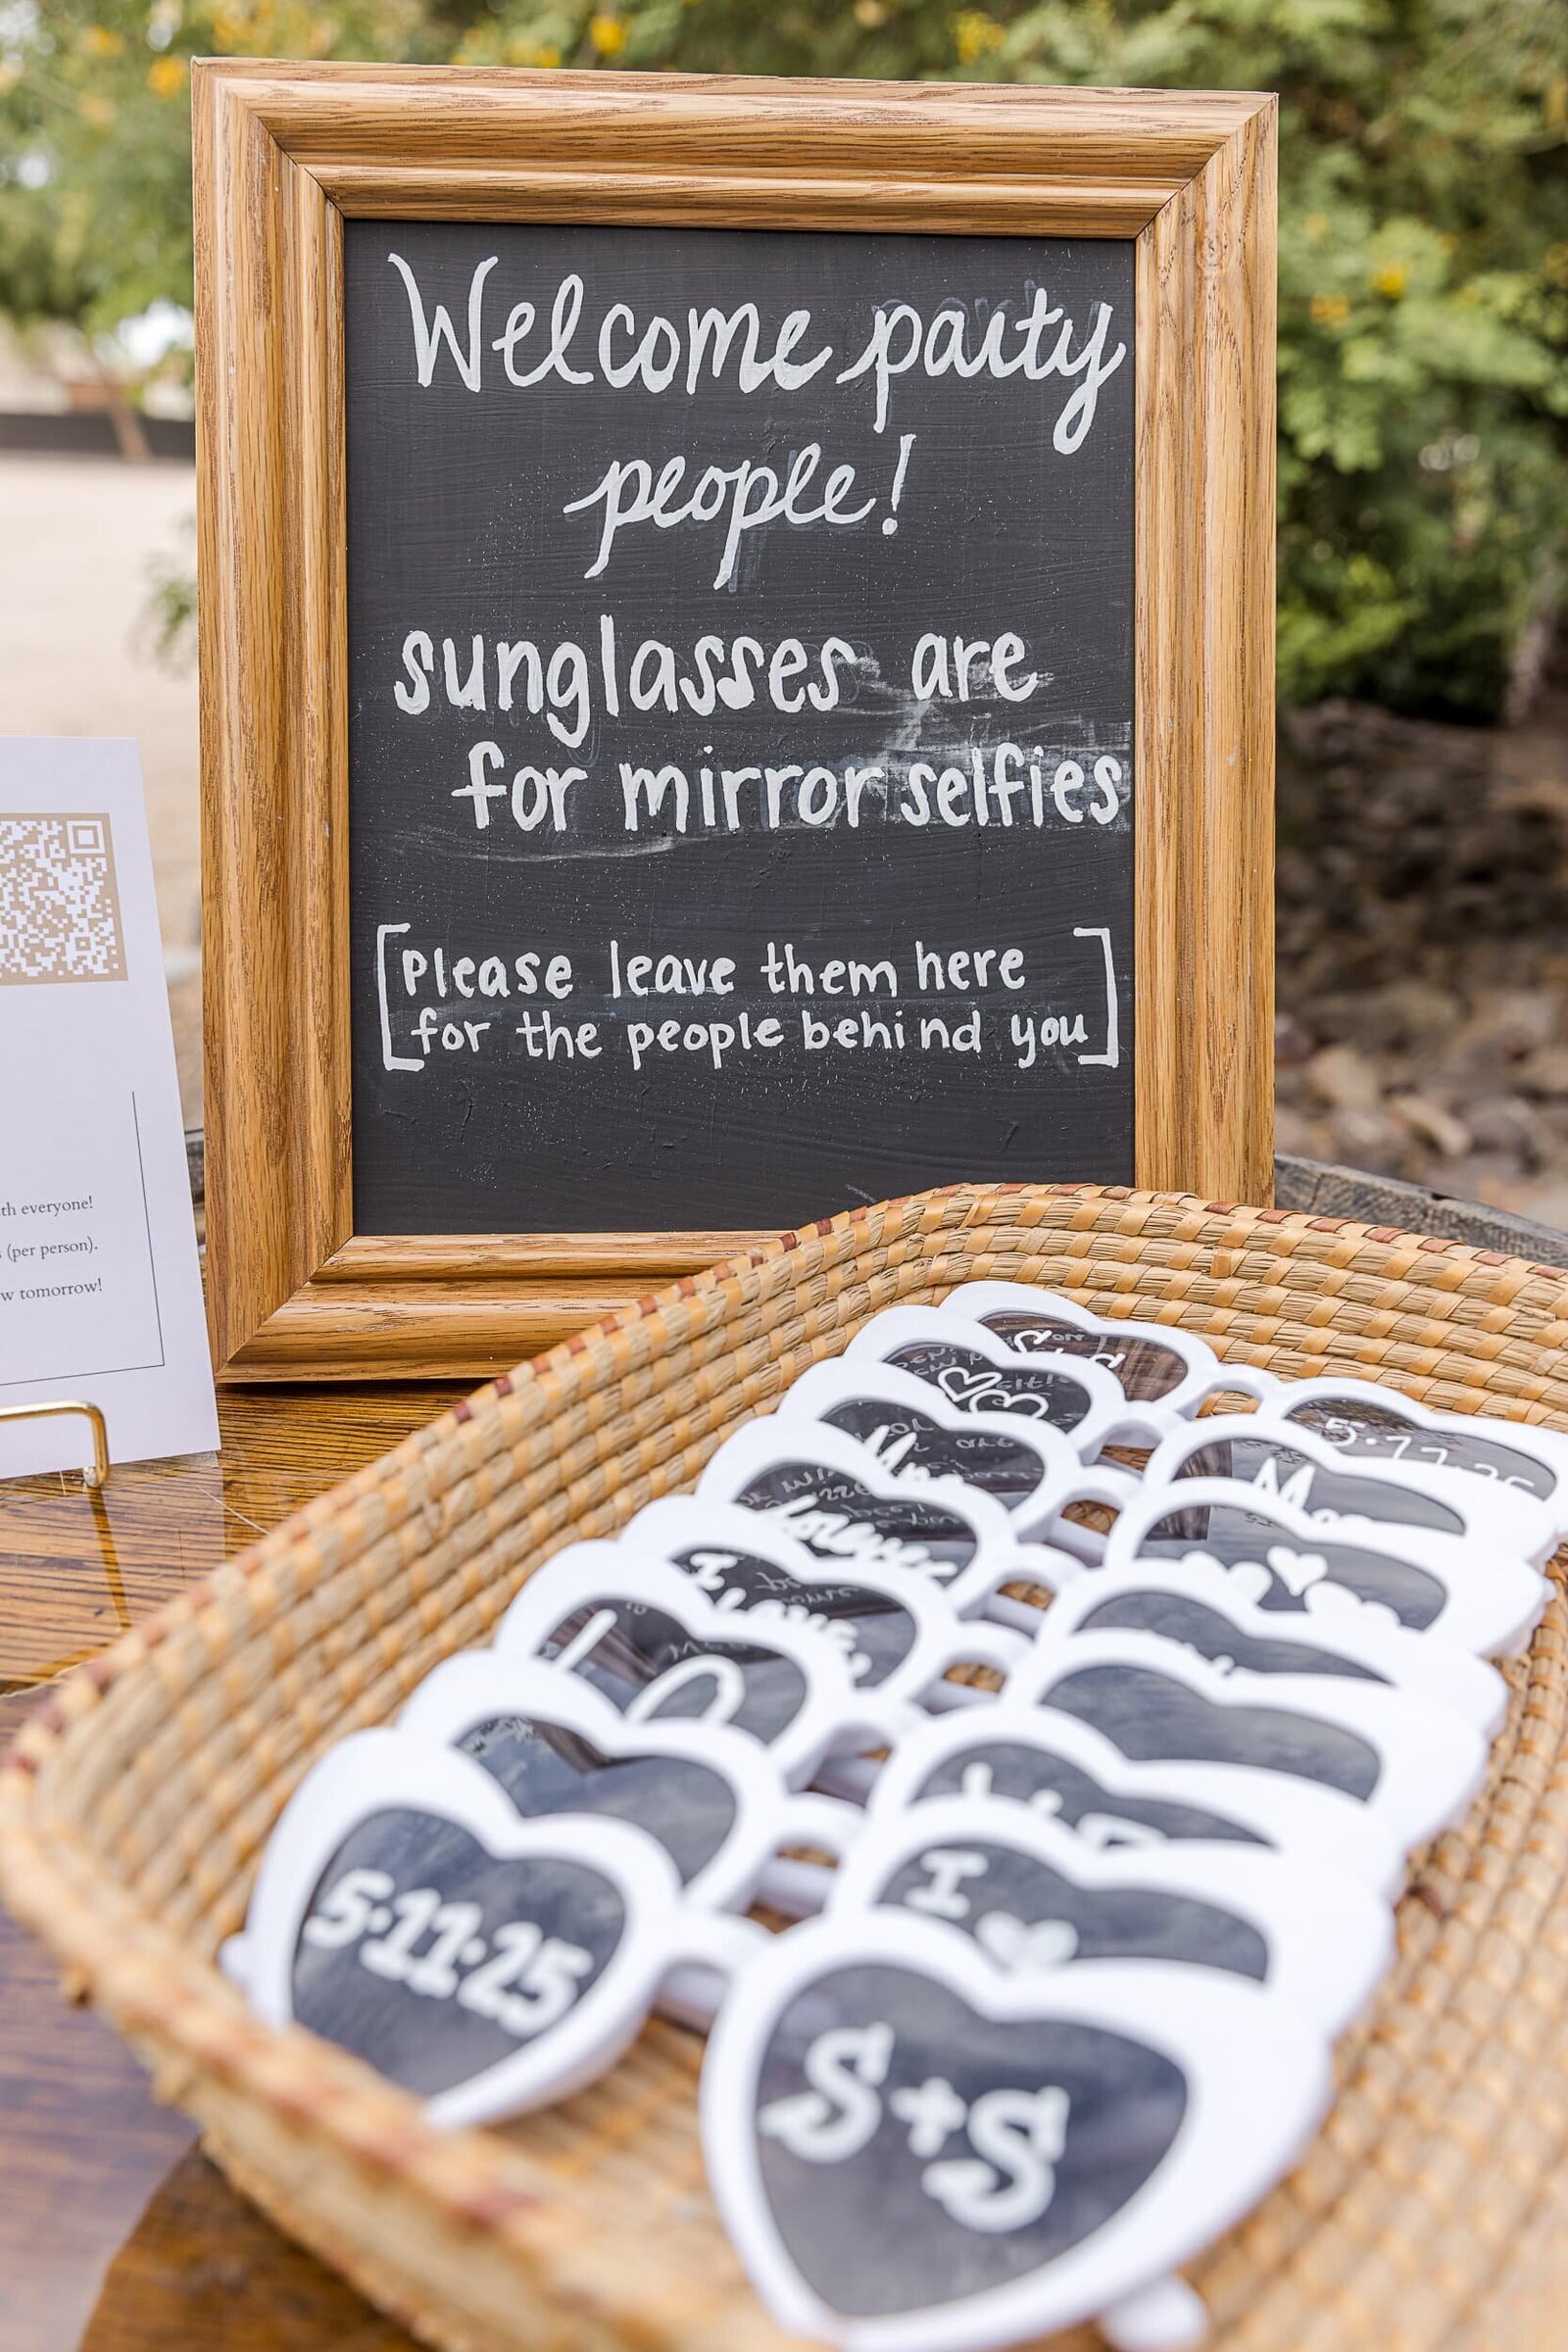 Welcome party
people!
sunglasses are
for mirror selfies
[Please leave them here
for the people behind you]
everyone!
(per person).
tomorrow!
Forever
I
5·11·25
S+S